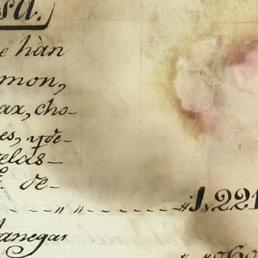 sa.
e hàn
mon,
ax, cho-
es, y de-
elas-
de-
1,221
anegas